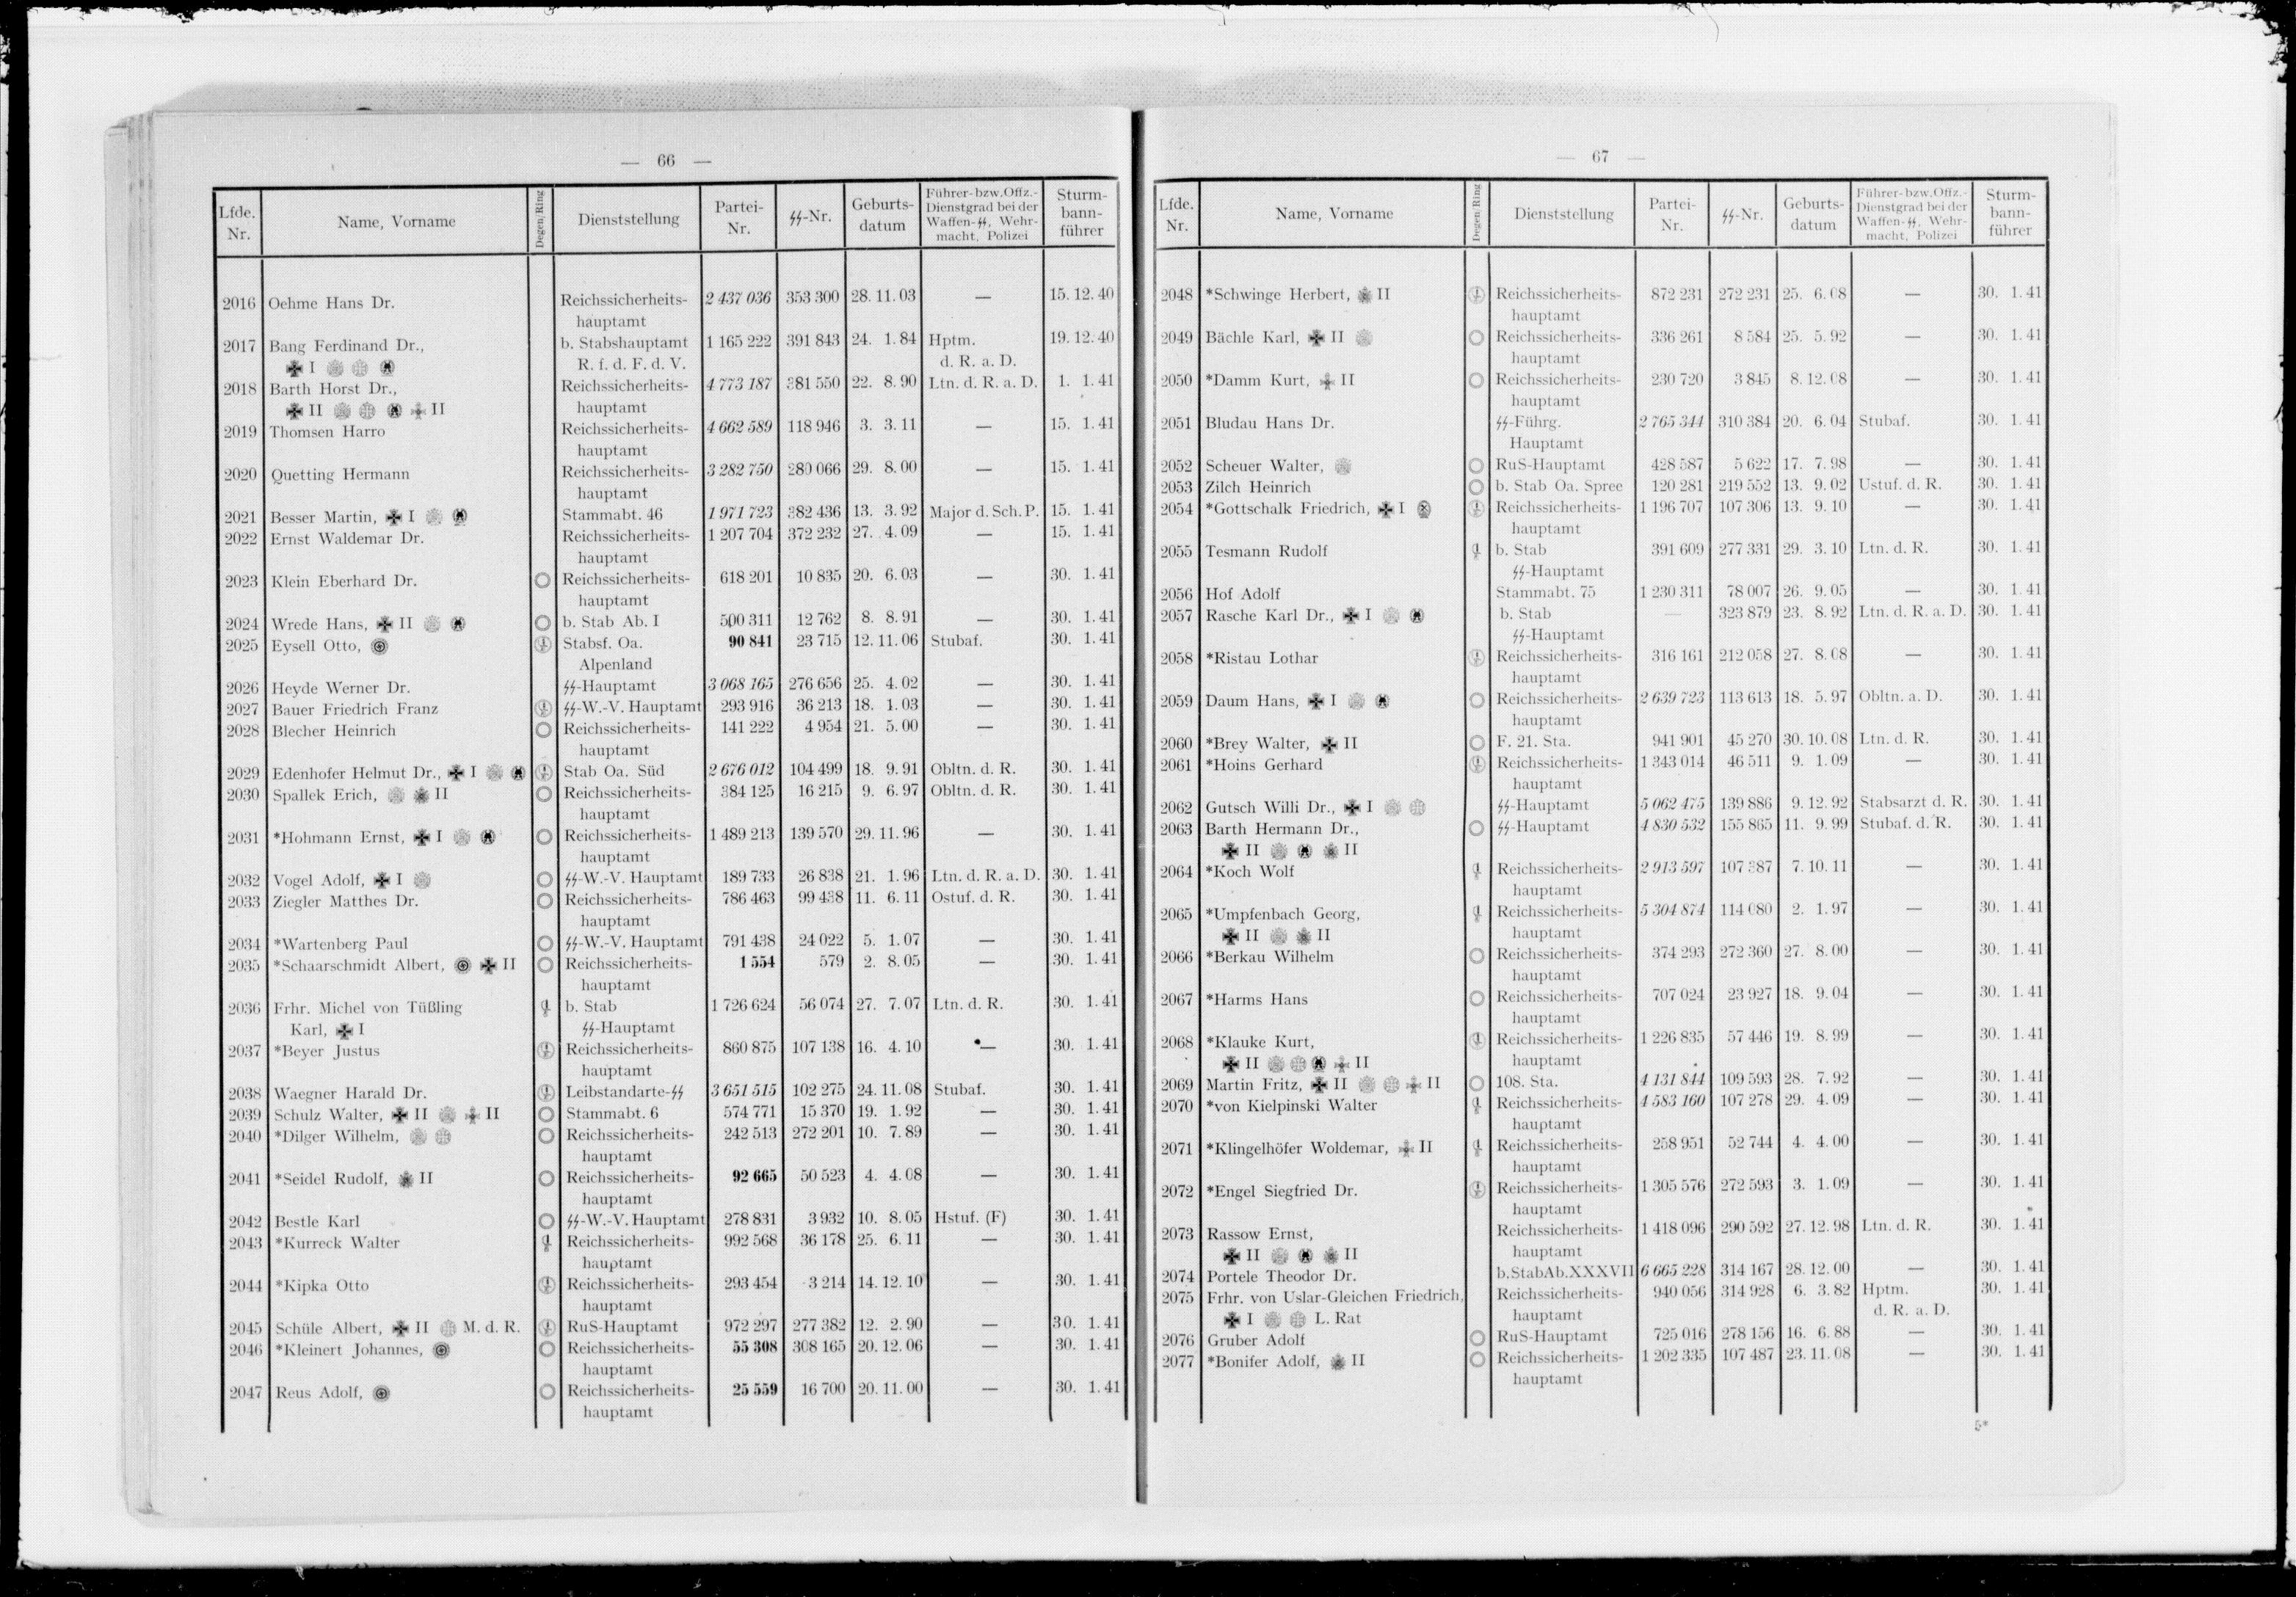 — 66 —
Lfde. Nr. Name, Vorname Degen/Ring Dienststellung Partei-Nr. ᛋᛋ-Nr. Geburts-datum Führer- bzw. Offz.-Dienstgrad bei der Waffen-ᛋᛋ, Wehr-macht, Polizei Sturm-bann-führer
2016 Oehme Hans Dr. Reichssicherheits- 2 437 036 353 300 28. 11. 03 — 15. 12. 40
hauptamt
2017 Bang Ferdinand Dr., b. Stabshauptamt 1 165 222 391 843 24. 1. 84 Hptm. 19. 12. 40
I R. f. d. F. d. V. d. R. a. D.
2018 Barth Horst Dr., Reichssicherheits- 4 773 187 381 550 22. 8. 90 Ltn. d. R. a. D. 1. 1. 41
II II hauptamt
2019 Thomsen Harro Reichssicherheits- 4 662 589 118 946 3. 3. 11 — 15. 1. 41
hauptamt
2020 Quetting Hermann Reichssicherheits- 3 282 750 280 066 29. 8. 00 — 15. 1. 41
hauptamt
2021 Besser Martin, I Stammabt. 46 1 971 723 382 436 13. 3. 92 Major d. Sch. P. 15. 1. 41
2022 Ernst Waldemar Dr. Reichssicherheits- 1 207 704 372 232 27. 4. 09 — 15. 1. 41
hauptamt
2023 Klein Eberhard Dr. Reichssicherheits- 618 201 10 835 20. 6. 03 — 30. 1. 41
hauptamt
2024 Wrede Hans, II b. Stab Ab. I 500 311 12 762 8. 8. 91 — 30. 1. 41
2025 Eysell Otto, Stabsf. Oa. 90 841 23 715 12. 11. 06 Stubaf. 30. 1. 41
Alpenland
2026 Heyde Werner Dr. ᛋᛋ-Hauptamt 3 068 165 276 656 25. 4. 02 — 30. 1. 41
2027 Bauer Friedrich Franz ᛋᛋ-W.-V. Hauptamt 293 916 36 213 18. 1. 03 — 30. 1. 41
2028 Blecher Heinrich Reichssicherheits- 141 222 4 954 21. 5. 00 — 30. 1. 41
hauptamt
2029 Edenhofer Helmut Dr., I Stab Oa. Süd 2 676 012 104 499 18. 9. 91 Obltn. d. R. 30. 1. 41
2030 Spallek Erich, II Reichssicherheits- 384 125 16 215 9. 6. 97 Obltn. d. R. 30. 1. 41
hauptamt
2031 *Hohmann Ernst, I Reichssicherheits- 1 489 213 139 570 29. 11. 96 — 30. 1. 41
hauptamt
2032 Vogel Adolf, I ᛋᛋ-W.-V. Hauptamt 189 733 26 838 21. 1. 96 Ltn. d. R. a. D. 30. 1. 41
2033 Ziegler Matthes Dr. Reichssicherheits- 786 463 99 438 11. 6. 11 Ostuf. d. R. 30. 1. 41
hauptamt
2034 *Wartenberg Paul ᛋᛋ-W.-V. Hauptamt 791 438 24 022 5. 1. 07 — 30. 1. 41
2035 *Schaarschmidt Albert, II Reichssicherheits- 1 554 579 2. 8. 05 — 30. 1. 41
hauptamt
2036 Frhr. Michel von Tüßling b. Stab 1 726 624 56 074 27. 7. 07 Ltn. d. R. 30. 1. 41
Karl, I ᛋᛋ-Hauptamt
2037 *Beyer Justus Reichssicherheits- 860 875 107 138 16. 4. 10 — 30. 1. 41
hauptamt
2038 Waegner Harald Dr. Leibstandarte-ᛋᛋ 3 651 515 102 275 24. 11. 08 Stubaf. 30. 1. 41
2039 Schulz Walter, II II Stammabt. 6 574 771 15 370 19. 1. 92 — 30. 1. 41
2040 *Dilger Wilhelm, Reichssicherheits- 242 513 272 201 10. 7. 89 — 30. 1. 41
hauptamt
2041 *Seidel Rudolf, II Reichssicherheits- 92 665 50 523 4. 4. 08 — 30. 1. 41
hauptamt
2042 Bestle Karl ᛋᛋ-W.-V. Hauptamt 278 831 3 932 10. 8. 05 Hstuf. (F) 30. 1. 41
2043 *Kurreck Walter Reichssicherheits- 992 568 36 178 25. 6. 11 — 30. 1. 41
hauptamt
2044 *Kipka Otto Reichssicherheits- 293 454 3 214 14. 12. 10 — 30. 1. 41
hauptamt
2045 Schüle Albert, II M. d. R. RuS-Hauptamt 972 297 277 382 12. 2. 90 — 30. 1. 41
2046 *Kleinert Johannes, Reichssicherheits- 55 308 308 165 20. 12. 06 — 30. 1. 41
hauptamt
2047 Reus Adolf, Reichssicherheits- 25 559 16 700 20. 11. 00 — 30. 1. 41
hauptamt
— 67 —
Lfde. Nr. Name, Vorname Degen/Ring Dienststellung Partei-Nr. ᛋᛋ-Nr. Geburts-datum Führer- bzw. Offz.-Dienstgrad bei der Waffen-ᛋᛋ, Wehr-macht, Polizei Sturm-bann-führer
2048 *Schwinge Herbert, II Reichssicherheits- 872 231 272 231 25. 6. 08 — 30. 1. 41
hauptamt
2049 Bächle Karl, II Reichssicherheits- 336 261 8 584 25. 5. 92 — 30. 1. 41
hauptamt
2050 *Damm Kurt, II Reichssicherheits- 230 720 3 845 8. 12. 08 — 30. 1. 41
hauptamt
2051 Bludau Hans Dr. ᛋᛋ-Führg. 2 765 344 310 384 20. 6. 04 Stubaf. 30. 1. 41
Hauptamt
2052 Scheuer Walter, RuS-Hauptamt 428 587 5 622 17. 7. 98 — 30. 1. 41
2053 Zilch Heinrich b. Stab Oa. Spree 120 281 219 552 13. 9. 02 Ustuf. d. R. 30. 1. 41
2054 *Gottschalk Friedrich, I Reichssicherheits- 1 196 707 107 306 13. 9. 10 — 30. 1. 41
hauptamt
2055 Tesmann Rudolf b. Stab 391 609 277 331 29. 3. 10 Ltn. d. R. 30. 1. 41
ᛋᛋ-Hauptamt
2056 Hof Adolf Stammabt. 75 1 230 311 78 007 26. 9. 05 — 30. 1. 41
2057 Rasche Karl Dr., I b. Stab — 323 879 23. 8. 92 Ltn. d. R. a. D. 30. 1. 41
ᛋᛋ-Hauptamt
2058 *Ristau Lothar Reichssicherheits- 316 161 212 058 27. 8. 08 — 30. 1. 41
hauptamt
2059 Daum Hans, I Reichssicherheits- 2 639 723 113 613 18. 5. 97 Obltn. a. D. 30. 1. 41
hauptamt
2060 *Brey Walter, II F. 21. Sta. 941 901 45 270 30. 10. 08 Ltn. d. R. 30. 1. 41
2061 *Hoins Gerhard Reichssicherheits- 1 343 014 46 511 9. 1. 09 — 30. 1. 41
hauptamt
2062 Gutsch Willi Dr., I ᛋᛋ-Hauptamt 5 062 475 139 886 9. 12. 92 Stabsarzt d. R. 30. 1. 41
2063 Barth Hermann Dr., ᛋᛋ-Hauptamt 4 830 532 155 865 11. 9. 99 Stubaf. d. R. 30. 1. 41
II II
2064 *Koch Wolf Reichssicherheits- 2 913 597 107 387 7. 10. 11 — 30. 1. 41
hauptamt
2065 *Umpfenbach Georg, Reichssicherheits- 5 304 874 114 080 2. 1. 97 — 30. 1. 41
II II hauptamt
2066 *Berkau Wilhelm Reichssicherheits- 374 293 272 360 27. 8. 00 — 30. 1. 41
hauptamt
2067 *Harms Hans Reichssicherheits- 707 024 23 927 18. 9. 04 — 30. 1. 41
hauptamt
2068 *Klauke Kurt, Reichssicherheits- 1 226 835 57 446 19. 8. 99 — 30. 1. 41
II II hauptamt
2069 Martin Fritz, II II 108. Sta. 4 131 844 109 593 28. 7. 92 — 30. 1. 41
2070 *von Kielpinski Walter Reichssicherheits- 4 583 160 107 278 29. 4. 09 — 30. 1. 41
hauptamt
2071 *Klingelhöfer Woldemar, II Reichssicherheits- 258 951 52 744 4. 4. 00 — 30. 1. 41
hauptamt
2072 *Engel Siegfried Dr. Reichssicherheits- 1 305 576 272 593 3. 1. 09 — 30. 1. 41
hauptamt
2073 Rassow Ernst, Reichssicherheits- 1 418 096 290 592 27. 12. 98 Ltn. d. R. 30. 1. 41
II II hauptamt
2074 Portele Theodor Dr. b. Stab Ab. XXXVII 6 665 228 314 167 28. 12. 00 — 30. 1. 41
2075 Frhr. von Uslar-Gleichen Friedrich, Reichssicherheits- 940 056 314 928 6. 3. 82 Hptm. 30. 1. 41
I L. Rat hauptamt d. R. a. D.
2076 Gruber Adolf RuS-Hauptamt 725 016 278 156 16. 6. 88 — 30. 1. 41
2077 *Bonifer Adolf, II Reichssicherheits- 1 202 335 107 487 23. 11. 08 — 30. 1. 41
hauptamt
5*